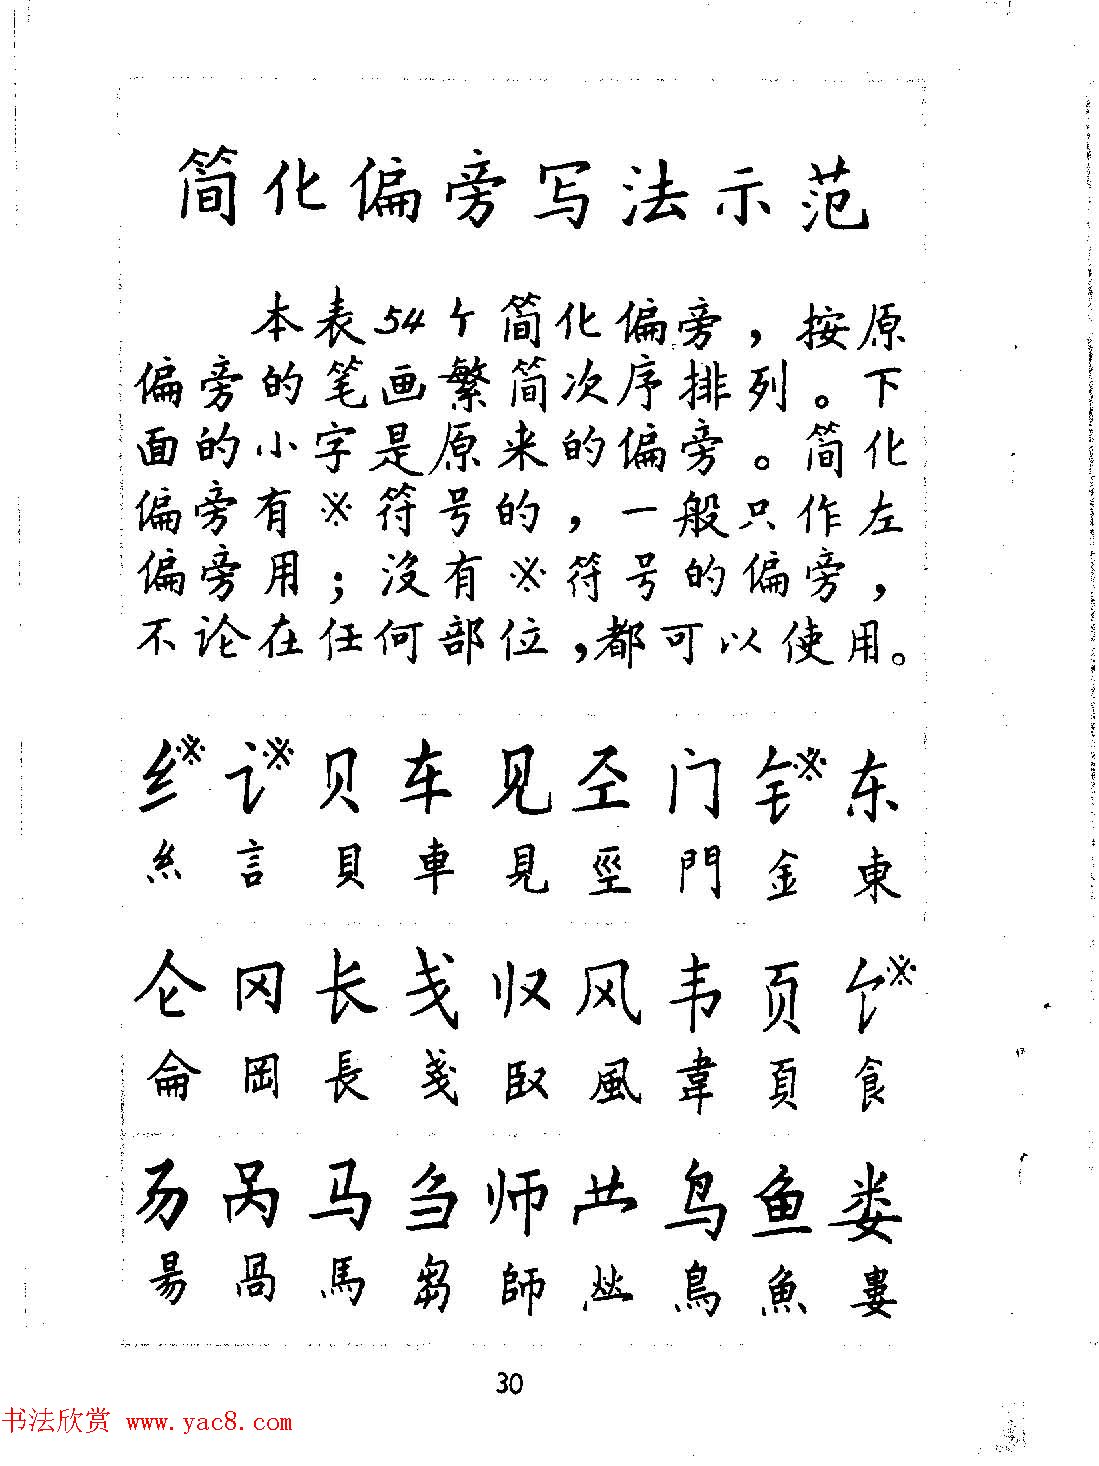 简化偏旁写法示范
本表54个简化偏旁，按原
偏旁的笔画繁简次序排列。下
面的小字是原来的偏旁。简化
偏旁有※符号的，一般只作左
偏旁用；没有※符号的偏旁，
不论在任何部位，都可以使用。
纟※ 讠※ 贝 车 见 圣 门 钅※ 东
糹 言 貝 車 見 巠 門 金 東
仑 冈 长 戋 归 风 韦 页 饣※
侖 岡 長 戔 臤 風 韋 頁 食
昜 呙 马 刍 师 鸟 鱼 娄
昜 咼 馬 芻 師 鳥 魚 婁
30
书法欣赏 www.yac8.com